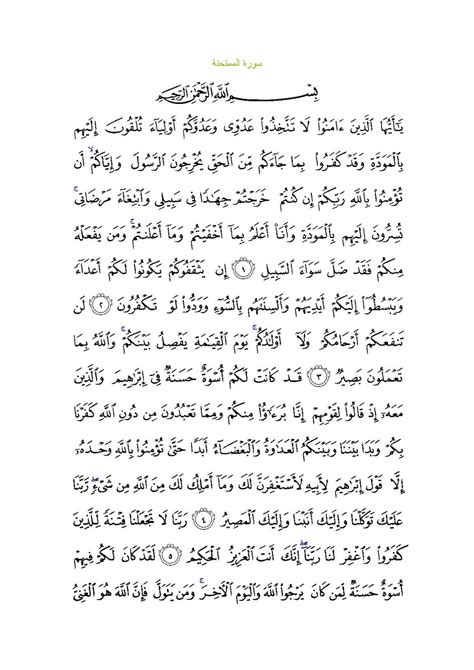 سورة الممتحنة
بِسْمِ اللَّهِ الرَّحْمَٰنِ الرَّحِيمِ
يَٰٓأَيُّهَا ٱلَّذِينَ ءَامَنُوا۟ لَا تَتَّخِذُوا۟ عَدُوِّى وَعَدُوَّكُمْ أَوْلِيَآءَ تُلْقُونَ إِلَيْهِم
بِٱلْمَوَدَّةِ وَقَدْ كَفَرُوا۟ بِمَا جَآءَكُم مِّنَ ٱلْحَقِّ يُخْرِجُونَ ٱلرَّسُولَ وَإِيَّاكُمْ ۙ أَن
تُؤْمِنُوا۟ بِٱللَّهِ رَبِّكُمْ إِن كُنتُمْ خَرَجْتُمْ جِهَٰدًا فِى سَبِيلِى وَٱبْتِغَآءَ مَرْضَاتِى ۚ
تُسِرُّونَ إِلَيْهِم بِٱلْمَوَدَّةِ وَأَنَا۠ أَعْلَمُ بِمَآ أَخْفَيْتُمْ وَمَآ أَعْلَنتُمْ ۚ وَمَن يَفْعَلْهُ
مِنكُمْ فَقَدْ ضَلَّ سَوَآءَ ٱلسَّبِيلِ ﴿١﴾ إِن يَثْقَفُوكُمْ يَكُونُوا۟ لَكُمْ أَعْدَآءً
وَيَبْسُطُوٓا۟ إِلَيْكُمْ أَيْدِيَهُمْ وَأَلْسِنَتَهُم بِٱلسُّوٓءِ وَوَدُّوا۟ لَوْ تَكْفُرُونَ ﴿٢﴾ لَن
تَنفَعَكُمْ أَرْحَامُكُمْ وَلَآ أَوْلَٰدُكُمْ ۚ يَوْمَ ٱلْقِيَٰمَةِ يَفْصِلُ بَيْنَكُمْ ۚ وَٱللَّهُ بِمَا
تَعْمَلُونَ بَصِيرٌ ﴿٣﴾ قَدْ كَانَتْ لَكُمْ أُسْوَةٌ حَسَنَةٌ فِىٓ إِبْرَٰهِيمَ وَٱلَّذِينَ
مَعَهُۥٓ إِذْ قَالُوا۟ لِقَوْمِهِمْ إِنَّا بُرَءَٰٓؤُا۟ مِنكُمْ وَمِمَّا تَعْبُدُونَ مِن دُونِ ٱللَّهِ كَفَرْنَا
بِكُمْ وَبَدَا بَيْنَنَا وَبَيْنَكُمُ ٱلْعَدَٰوَةُ وَٱلْبَغْضَآءُ أَبَدًا حَتَّىٰ تُؤْمِنُوا۟ بِٱللَّهِ وَحْدَهُۥٓ
إِلَّا قَوْلَ إِبْرَٰهِيمَ لِأَبِيهِ لَأَسْتَغْفِرَنَّ لَكَ وَمَآ أَمْلِكُ لَكَ مِنَ ٱللَّهِ مِن شَىْءٍ ۖ رَّبَّنَا
عَلَيْكَ تَوَكَّلْنَا وَإِلَيْكَ أَنَبْنَا وَإِلَيْكَ ٱلْمَصِيرُ ﴿٤﴾ رَبَّنَا لَا تَجْعَلْنَا فِتْنَةً لِّلَّذِينَ
كَفَرُوا۟ وَٱغْفِرْ لَنَا رَبَّنَآ ۖ إِنَّكَ أَنتَ ٱلْعَزِيزُ ٱلْحَكِيمُ ﴿٥﴾ لَقَدْ كَانَ لَكُمْ فِيهِمْ
أُسْوَةٌ حَسَنَةٌ لِّمَن كَانَ يَرْجُوا۟ ٱللَّهَ وَٱلْيَوْمَ ٱلْءَاخِرَ ۚ وَمَن يَتَوَلَّ فَإِنَّ ٱللَّهَ هُوَ ٱلْغَنِىُّ